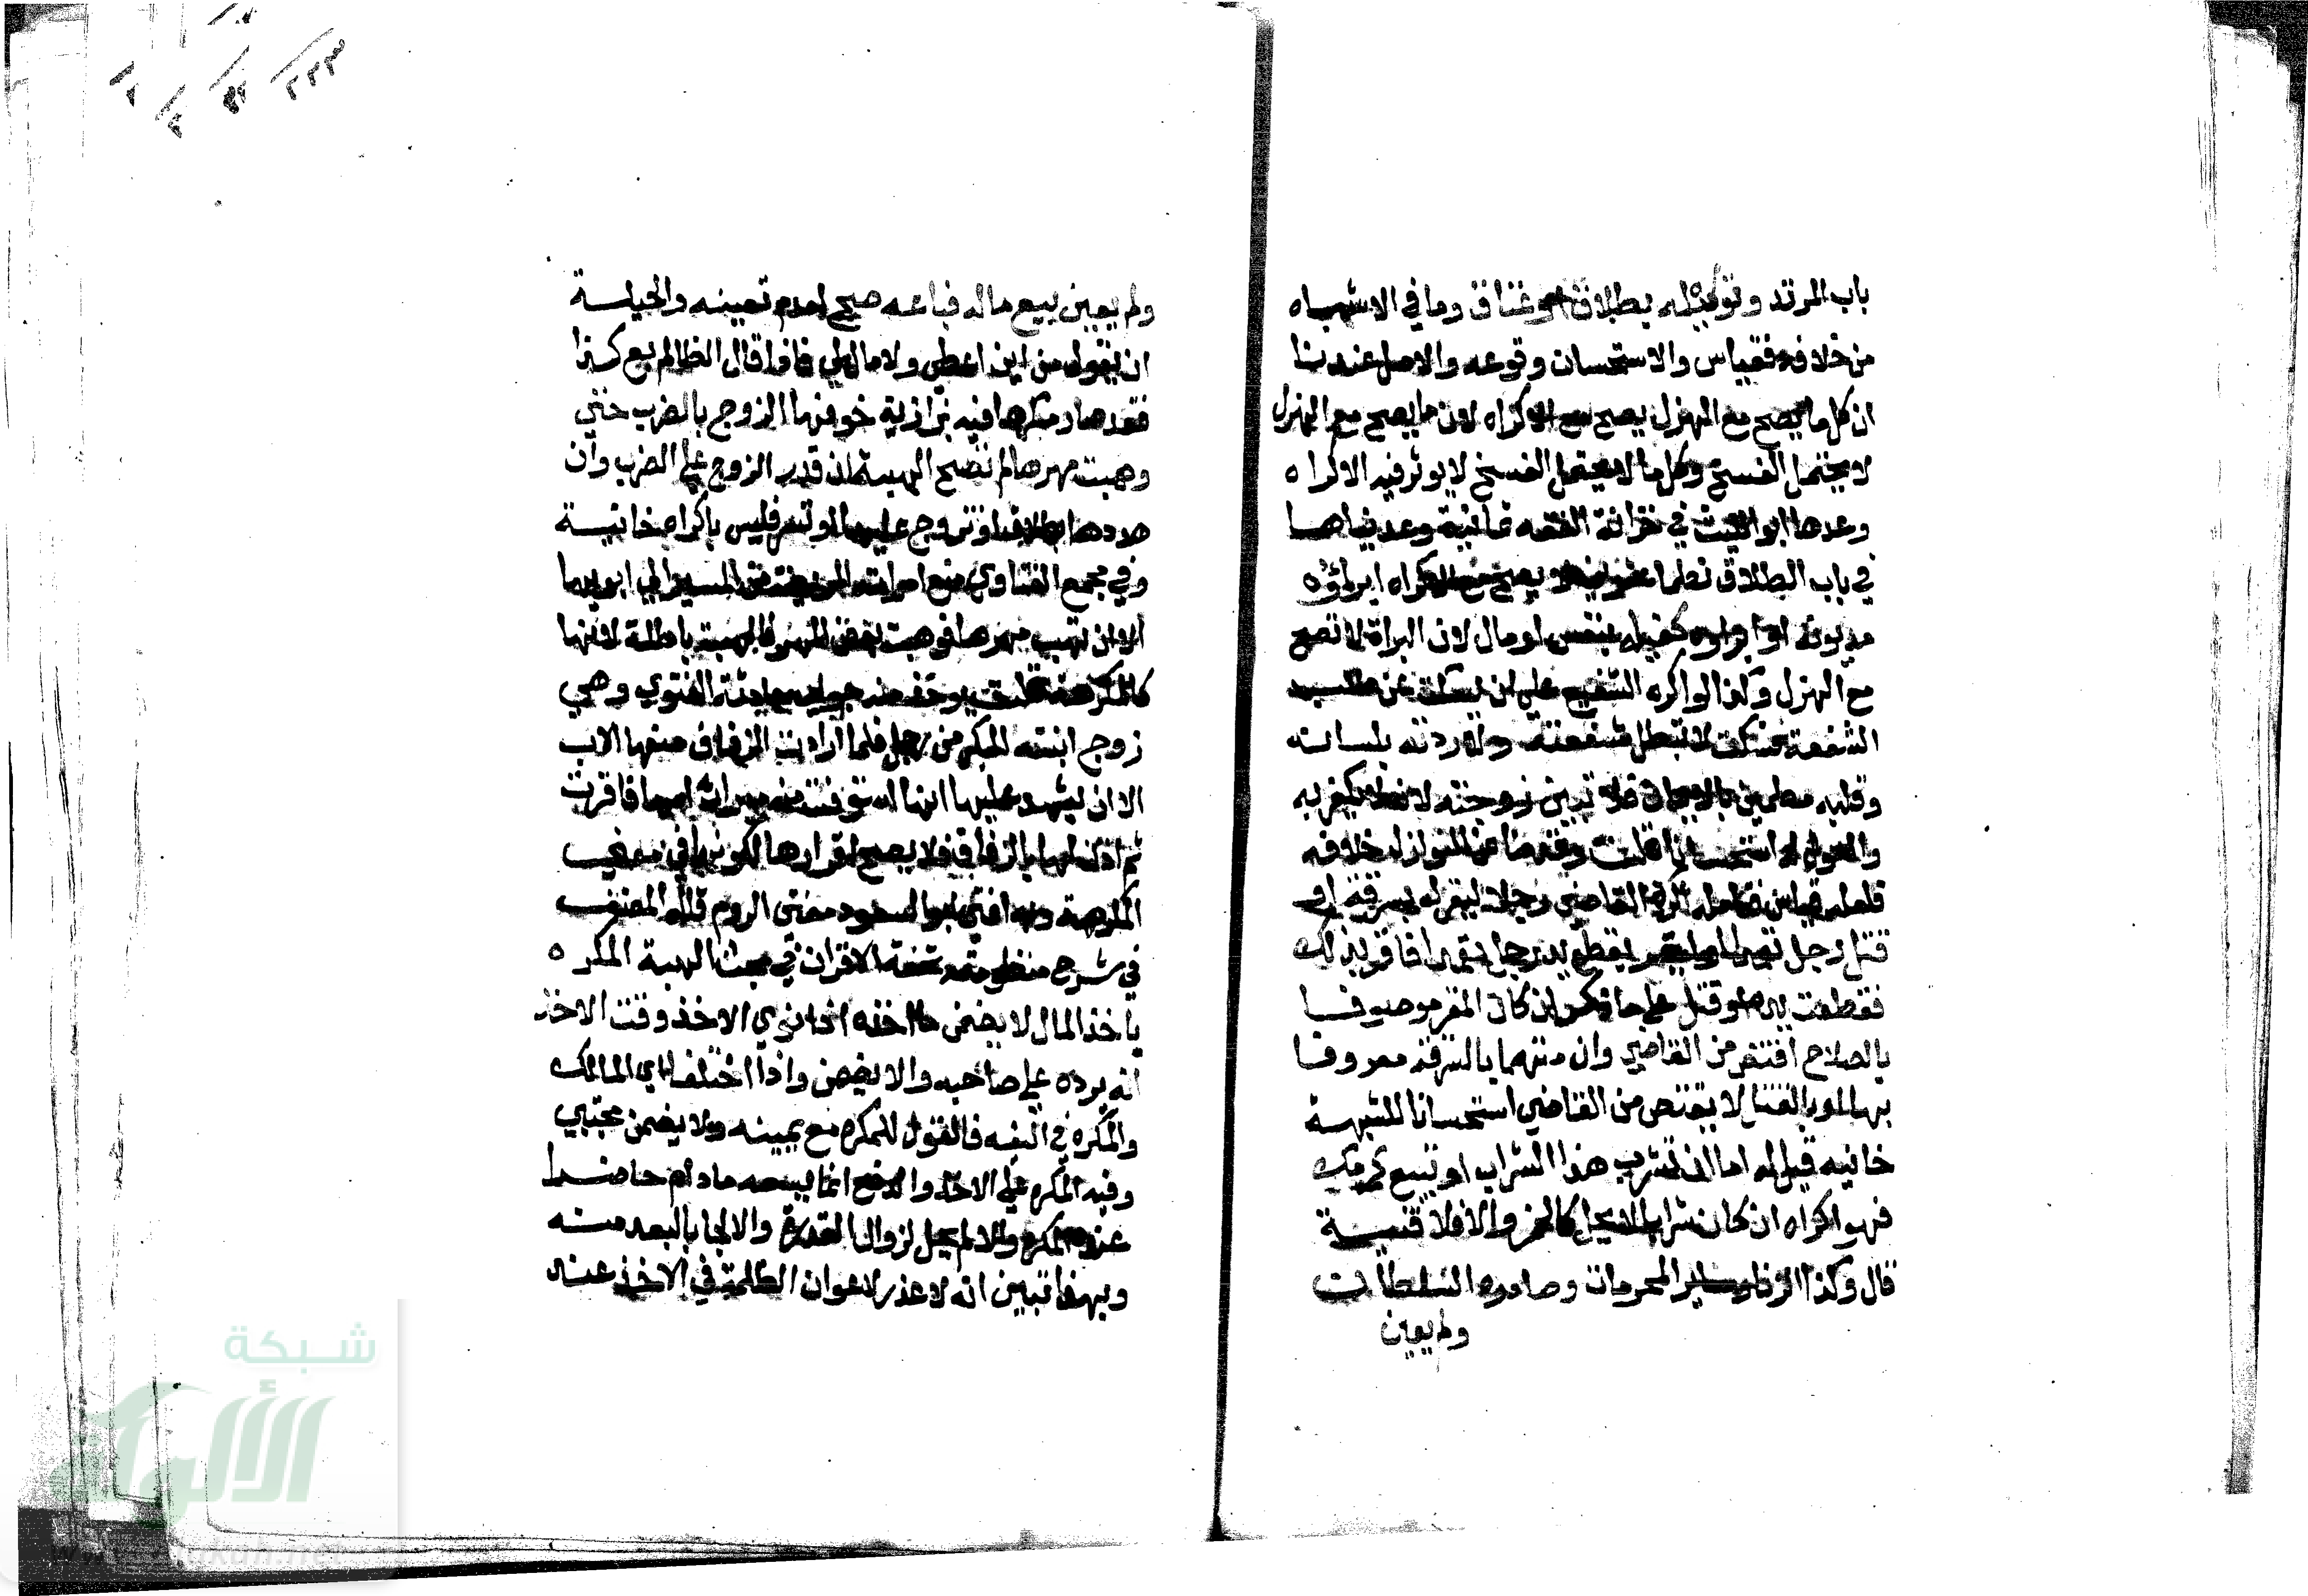 باب المرتد وتوكيله بطلاق وعتاق وما في الاشباه
من خلافه فقياس والاستحسان وقوعه والاصل عندنا
ان كل ما يصح مع الهزل يصح مع الاكراه لان ما يصح مع الهزل
لا يحتمل الفسخ وكل ما لا يحتمل الفسخ لا يوثر فيه الاكراه
وعدها ابو الليث في خزانة الفقه ثمانية وعدنياها
في باب الطلاق نظما لا يصح مع الاكراه ابراؤه
مديونه او ابراوه كفيله بنفس او مال لان البراة لا تصح
مع الهزل وكذا لو اكره الشفيع علي ان يسكت عن طلب
الشفعة فسكت لا تبطل شفعته ولا ردته بلسانه
وقلبه مطمين بالايمان فلا تبين زوجته لانه لا يكفر به
والقول له استحسانا قلت وقدمنا عن النوازل خلافه
فلعله قياس فتامله اكره القاضي رجلا ليقر بسرقة او
قتل رجل بعمد او ليقر بقطع يد رجل بعمد فاقر بذلك
فقطعت يده او قتل علي ما ذكر ان كان المقر موصوفا
بالصلاح اقتص من القاضي وان متهما بالسرقة معروفا
بها وبالقتل لا يقتص من القاضي استحسانا للشبهة
خانيه قيل له اما ان تشرب هذا الشراب او تبيع كرمك
فهو اكراه ان كان شرابا لا يحل كالخمر والا فلا قنية
قال وكذا الزنا وساير المحرمات وصادره السلطان
ولم يعين
ولم يعين بيع ماله فباعه صح لعدم تعينه والحيلة
ان يقول من اين اعطي ولا مال لي فاذا قال الظالم بع كذا
فقد صار مكرها فيه بزازية خوفها الزوج بالضرب حتي
وهبت مهرها لم تصح الهبة ان قدر الزوج علي الضرب وان
هددها بطلاق او تزوج عليها او تسر فليس باكراه خانية
وفي مجمع الفتاوي منع امراته المريضة عن المسير الي ابويها
الا ان تهب مهرها فوهبت بعض المهر فالهبة باطلة لانها
كالمكرهة قلت يوخذ منه جواب حادثة الفتوي وهي
زوج ابنته البكر من رجل فلما ارادت الزفاف منعها الاب
الا ان يشهد عليها انها استوفت منه ميراث امها فاقرت
ثم اذن لها بالزفاف فلا يصح اقرارها لكونها في معني
المكرهة وبه افتي ابو السعود مفتي الروم قاله المصنف
في شرح منظومته تحفة الاقران في بحث الهبة المكره
ياخذ المال لا يضمن ما اخذه اذا نوي الاخذ وقت الاخذ
انه يرده علي صاحبه والا يضمن واذا اختلفا اي المالك
والمكره في النية فالقول للمكره مع يمينه ولا يضمن مجتبي
وفيه المكره علي الاخذ والدفع انما يسعه ما دام حاضرا
عنده المكره والا لم يحل لزوال القدرة والالجا بالبعد منه
وبهذا تبين انه لا عذر لاعوان الظلمة في الاخذ عند